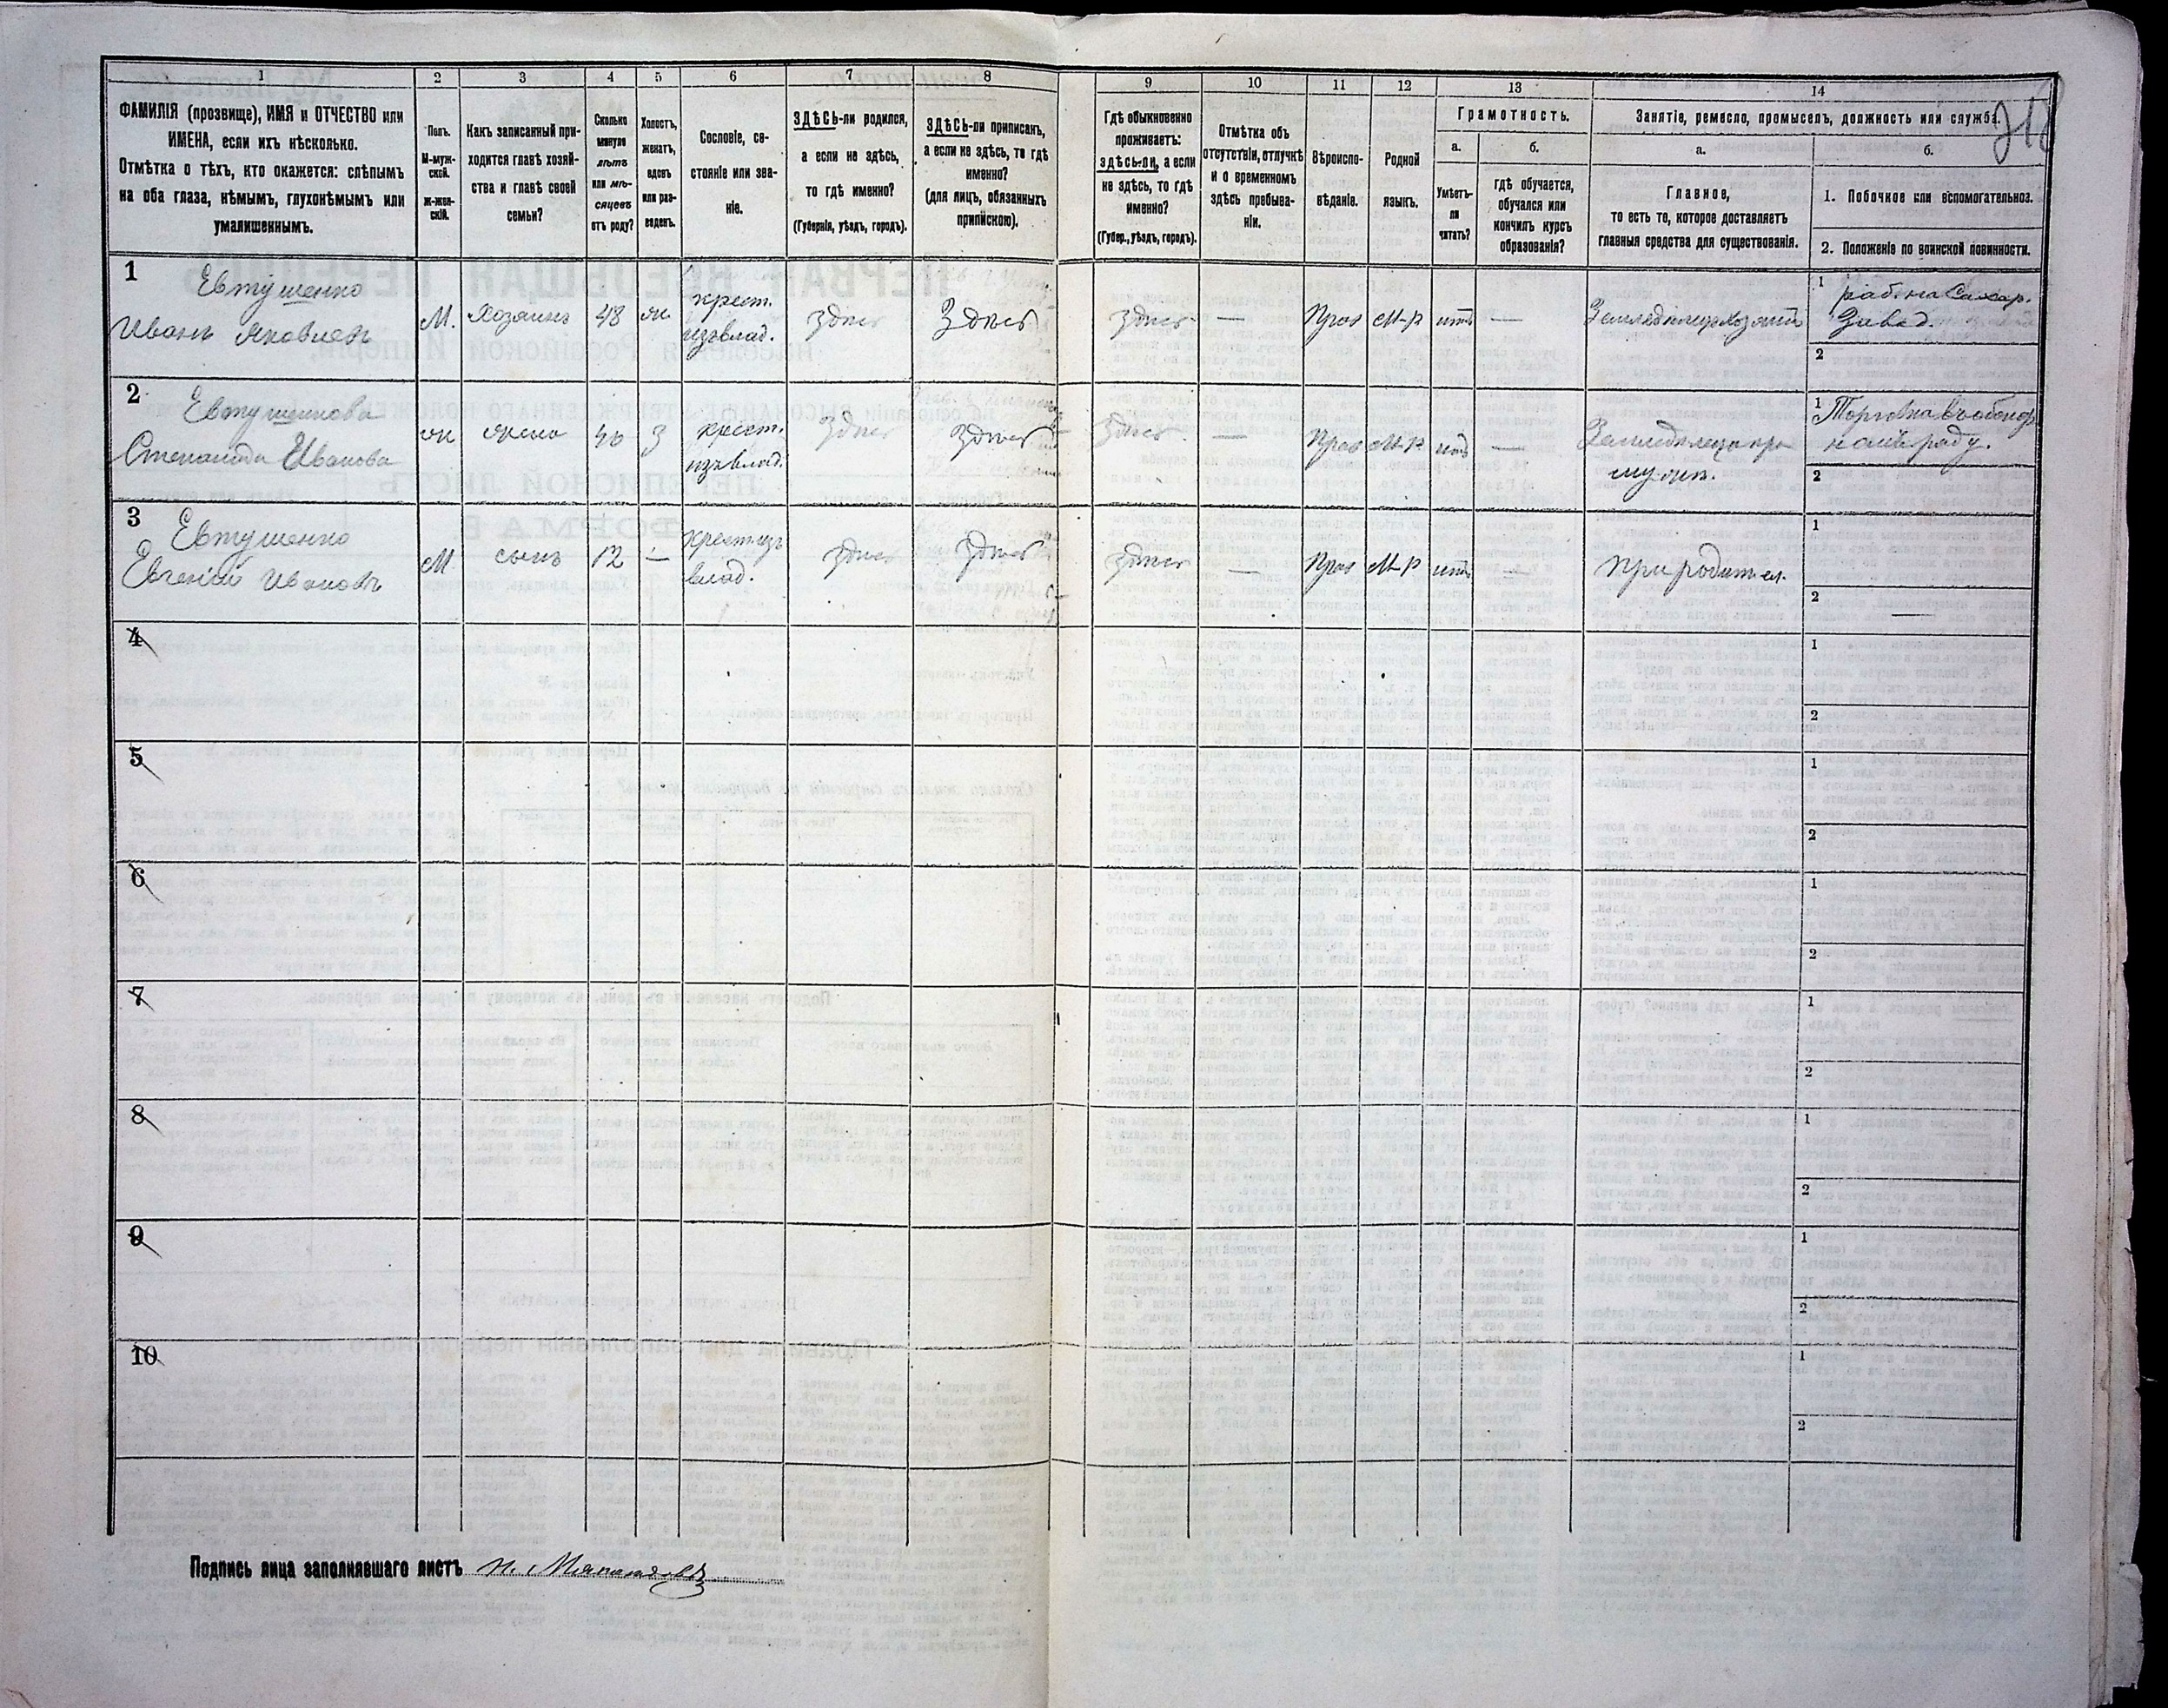 1 2 3 4 5 6 7 8 9 10 11 12 13 14
ФАМИЛІЯ (прозвище), ИМЯ и ОТЧЕСТВО или
ИМЕНА, если ихъ нѣсколько.
Отмѣтка о тѣхъ, кто окажется: слѣпымъ
на оба глаза, нѣмымъ, глухонѣмымъ или
умалишеннымъ.
Полъ.
М-муж-
ской.
ж-жен-
скій.
Какъ записанный при-
ходится главѣ хозяй-
ства и главѣ своей
семьи?
Сколько
минуло
лѣтъ
или мѣ-
сяцевъ
отъ роду?
Холостъ,
женатъ,
вдовъ
или раз-
веденъ.
Сословіе, со-
стояніе или зва-
ніе.
ЗДѢСЬ-ли родился,
а если не здѣсь,
то гдѣ именно?
(Губернія, уѣздъ, городъ).
ЗДѢСЬ-ли приписанъ,
а если не здѣсь, то гдѣ
именно?
(для лицъ, обязанныхъ
припискою).
Гдѣ обыкновенно
проживаетъ:
здѣсь-ли, а если
не здѣсь, то гдѣ
именно?
(Губер., уѣздъ, городъ).
Отмѣтка объ
отсутствіи, отлучкѣ
и о временномъ
здѣсь пребыва-
ніи.
Вѣроиспо-
вѣданіе.
Родной
языкъ.
Грамотность.
а.
Умѣетъ-
ли
читать?
б.
гдѣ обучается,
обучался или
кончилъ курсъ
образованія?
Занятіе, ремесло, промыселъ, должность или служба.
а.
Главное,
то есть то, которое доставляетъ
главныя средства для существованія.
б.
1. Побочное или вспомогательное.
2. Положеніе по воинской повинности.
1 Евтушенко
Иванъ Яковлевъ
М. Хозяинъ 48 ж
крест.
изъ влад.
здѣсь Здѣсь здѣсь — Прав М-Р нѣтъ —
1 раб. на Сахар.
Завод.
2
2 Евтушенкова
Степанида Иванова
ж жена
крест.
изъ влад.
здѣсь здѣсь здѣсь — Прав М-Р нѣтъ —
1
2
3 Евтушенко
Евгеній Ивановъ
М. сынъ 12 —
крест изъ
влад.
здѣсь здѣсь здѣсь — Прав М-Р нѣтъ — при родител.
1
2 —
4 1
2
5 1
2
6 1
2
7 1
2
8 1
2
9 1
2
10 1
2
Подпись лица заполнявшаго листъ